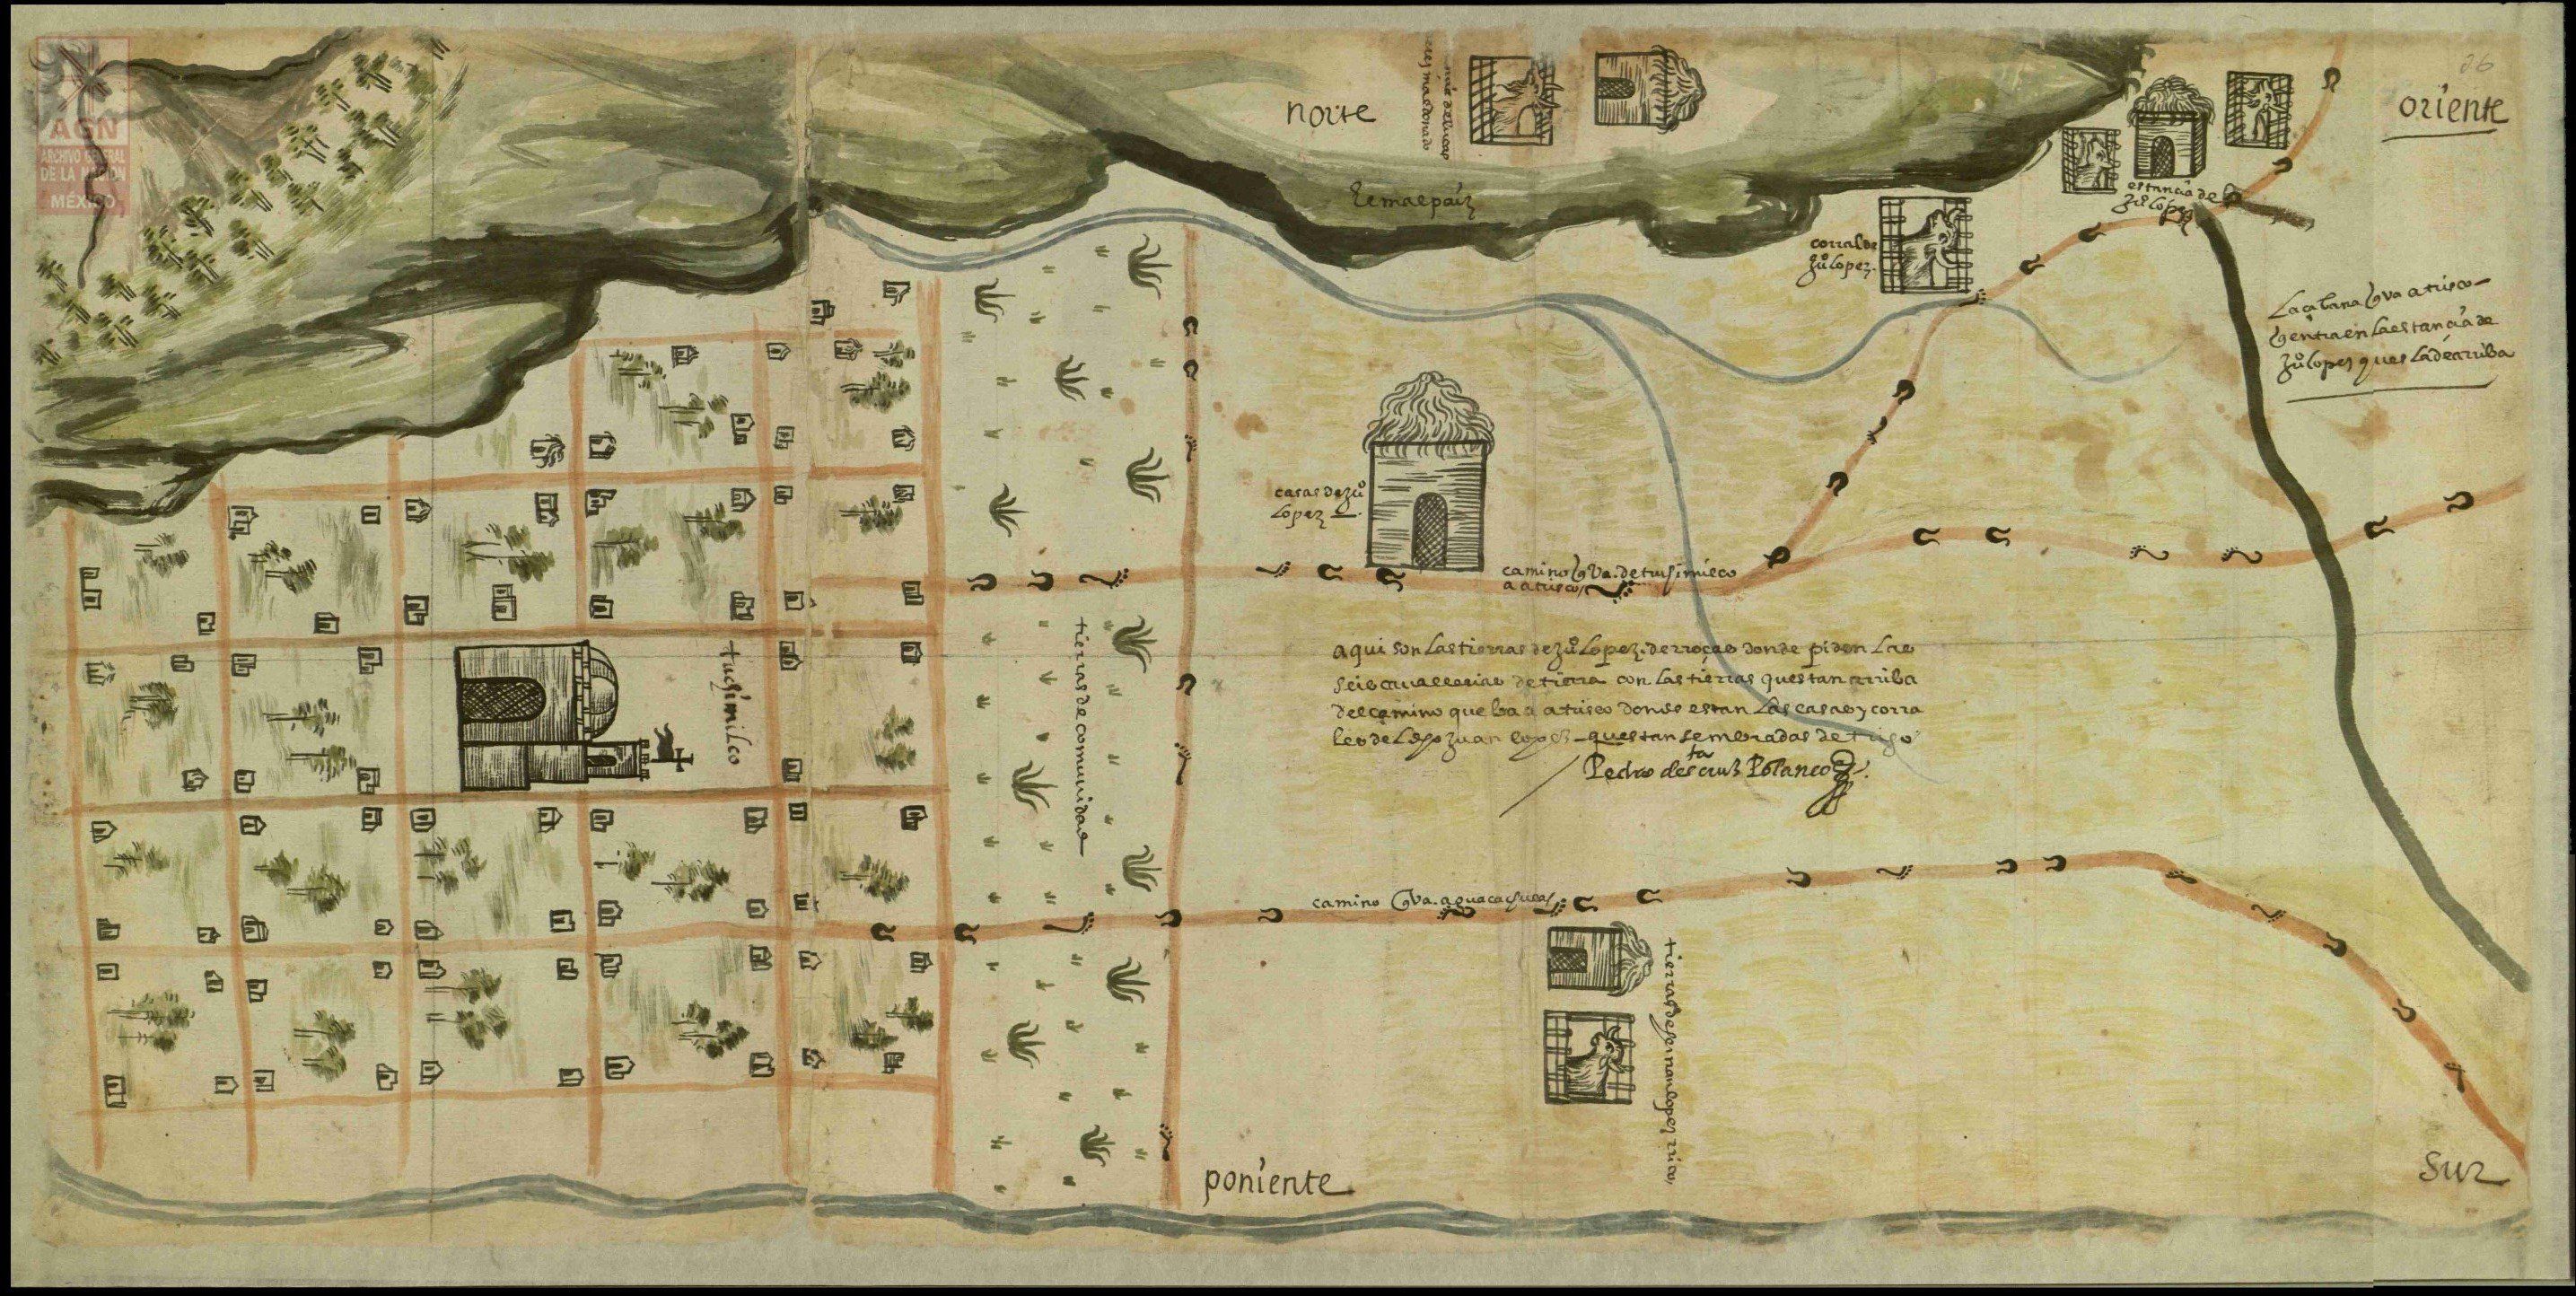 AGN
ARCHIVO GENERAL
DE LA NACIÓN
MÉXICO
norte
oriente
26
maldonado
estancia de
Juº Lopez
corral de
Juº Lopez.
Lemaepaiz
La çabana q va a tusco
q entra en la estancia de
Juº Lopez ques la de arriba
casas de Juº
Lopez
camino q Va. de tuchimilco
a atrisco
tuchimilco
tierras de comunidad
aqui son las tierras de Juº Lopez. de roças donde piden las
seis cauallerias de tierra con las tierras questan arriba
del camino que ba a atrisco donde estan las casas y corra
les del dho Juan lopez questan sembradas de trigo
Pedro de sta cruz Polanco
camino q Va. a guacachula
tierras de hernan lopez rico,
poniente
sur